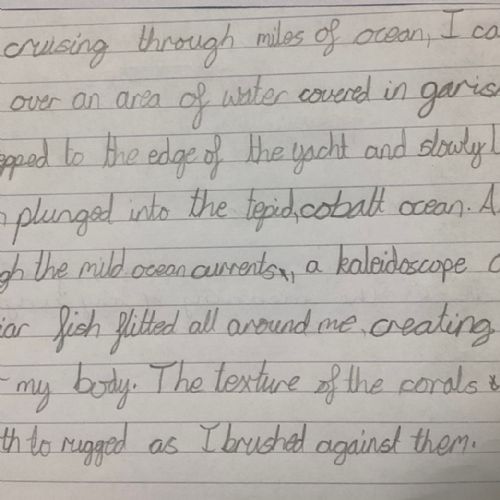 cruising through miles of ocean, I ca
over an area of water covered in garis
pped to the edge of the yacht and slowly l
plunged into the tepid, cobalt ocean. A
gh the mild ocean currents, a kaleidoscope
iar fish flitted all around me, creating
my body. The texture of the corals
th to rugged as I brushed against them.